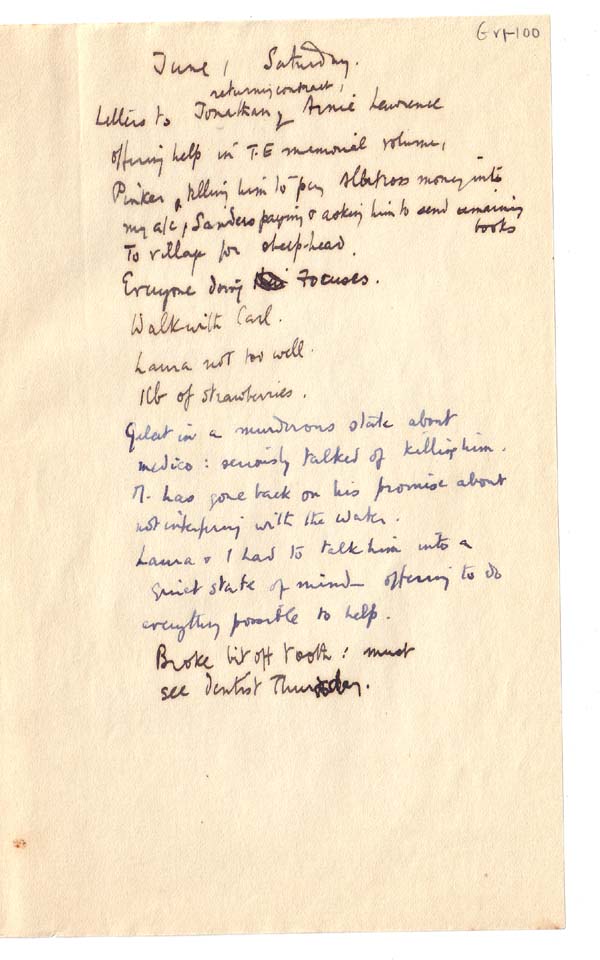 June 1 Saturday.
returning contract,
Letters to Jonathan, Arnie Lawrence
offering help in T.E memorial volume,
Pinker, telling him to pay Albatross money into
my a/c, Sanders paying & asking him to send remaining
books
To village for sheep-head.
Everyone doing Focuses.
Walk with Carl.
Laura not too well.
1lb of strawberries.
Gelat in a murderous state about
medico: seriously talked of killing him.
M. has gone back on his promise about
not interfering with the water.
Laura & I had to talk him into a
quiet state of mind – offering to do
everything possible to help.
Broke bit off tooth: must
see dentist Thursday.